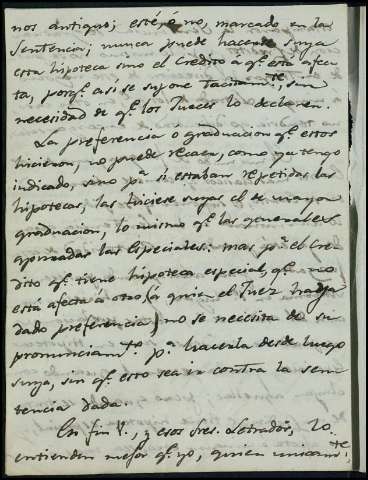 nos antiguo; esté, ó no, marcado en la
sentencia; nunca puede hacerse suya
esta hipoteca sino el Credito a qe. esta afec-
ta, porqe. asi se supone tacitamte., sin
necesidad de qe. los Jueces lo declaren.
La preferencia o graduacion qe. estos
hicieron, no puede recaer, como ya tengo
indicado, sino pa. si estaban repetidas las
hipotecas, las hiciese suyas el de mayor
graduacion, lo mismo qe. las generales
gravadas las Especiales: mas pa. el Cre-
dito qe. tiene hipoteca especial, qe. no
está afecta á otro (á quien el Juez haya
dado preferencia) no se necesita de su
pronunciamto. pa. hacerla desde luego
suya, sin qe. esto sea ir contra la sen-
tencia dada.
En fin V., y esos Sres. Letrados, lo
entienden mejor qe. yo, quien unicamte.